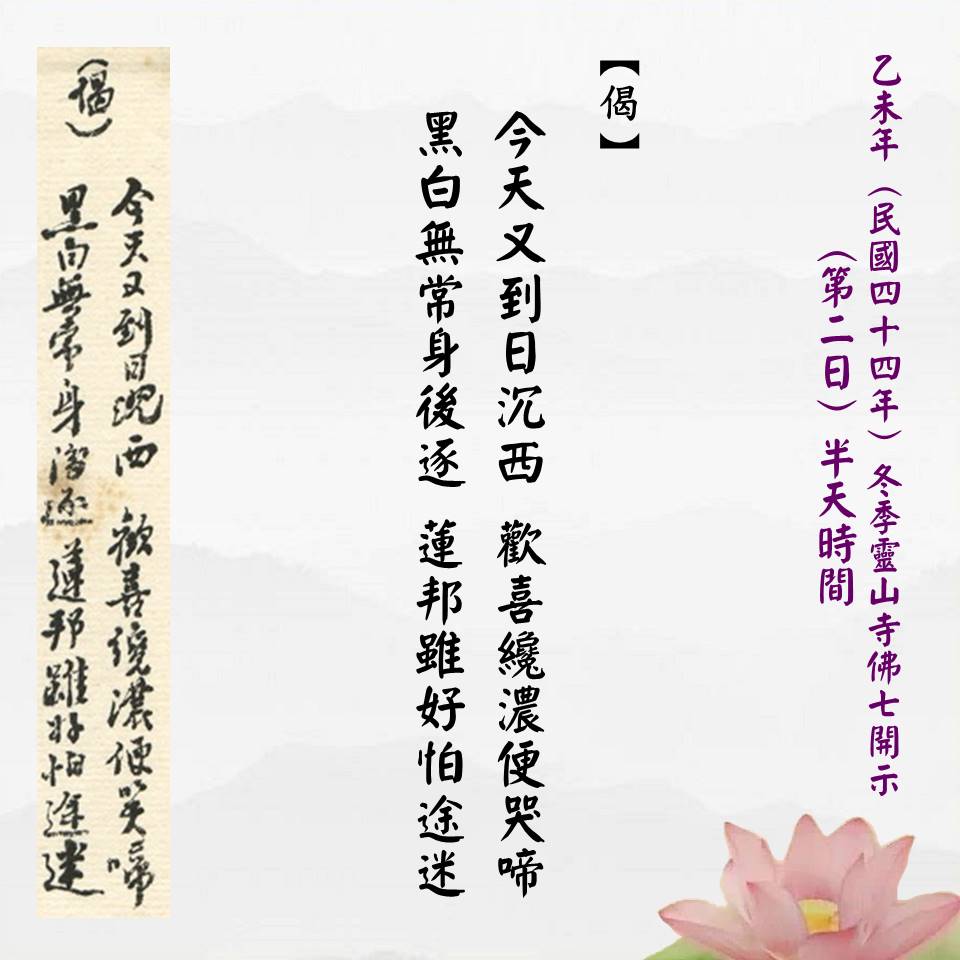 乙未年（民國四十四年）冬季靈山寺佛七開示
（第二日）半天時間
【偈】
今天又到日沉西　歡喜纔濃便哭啼
黑白無常身後逐　蓮邦雖好怕途迷
（偈）
今天又到日沉西　歡喜纔濃便哭啼
黑白無常身後逐　蓮邦雖好怕途迷